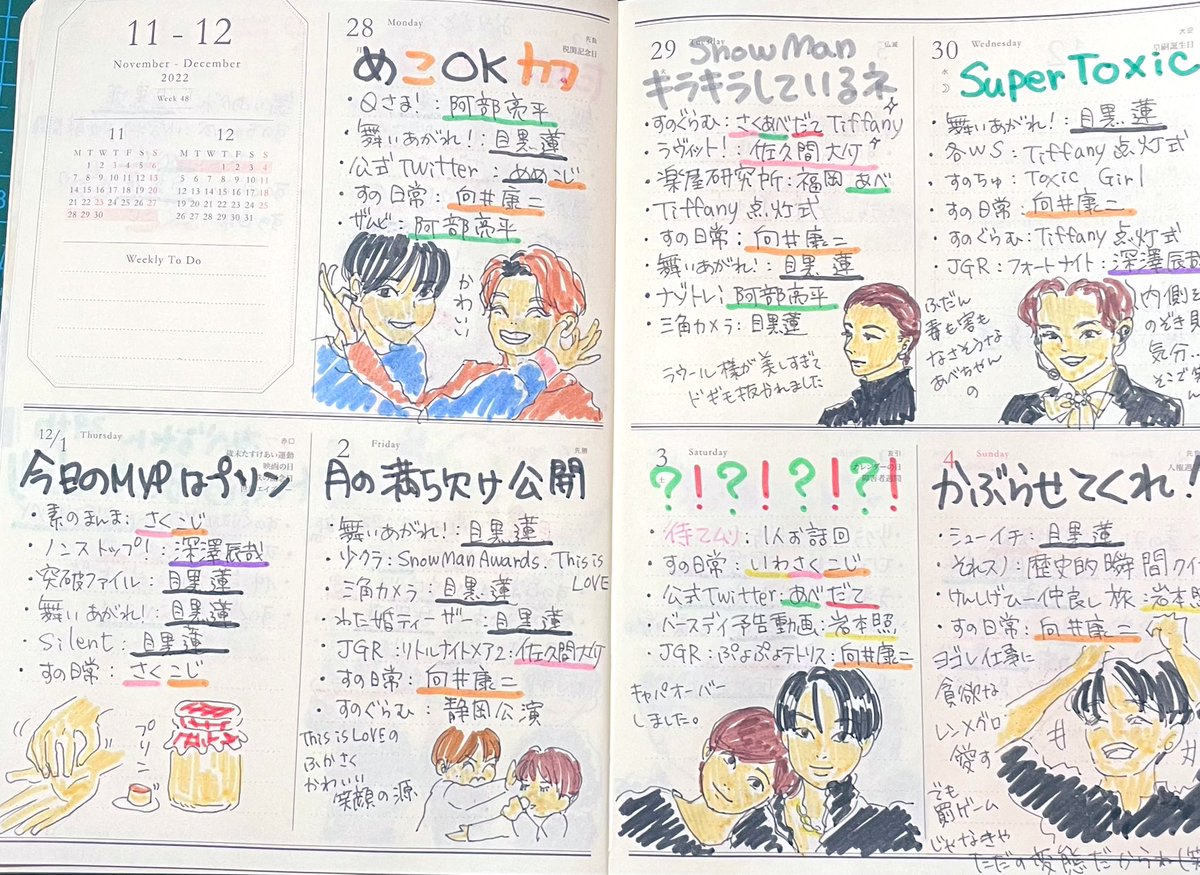 11 - 12
November - December
2022
Week 48
11 12
M T W T F S S M T W T F S S
1 2 3 4 5 6 1 2 3 4
7 8 9 10 11 12 13 5 6 7 8 9 10 11
14 15 16 17 18 19 20 12 13 14 15 16 17 18
21 22 23 24 25 26 27 19 20 21 22 23 24 25
28 29 30 26 27 28 29 30 31
Weekly To Do
28 Monday
先負
税関記念日
めこOKカ
・Qさま!:阿部亮平
・舞いあがれ!:目黒蓮
・公式Twitter:めめこじ
・すの日常:向井康二
・ザんビ:阿部亮平
かわいい
29
仏滅
SnowMan
キラキラしているネ
・すのぐらむ:さくあべだて Tiffany
・ラヴィット!:佐久間大介
・楽屋研究所:福岡あべ
・Tiffany点灯式
・すの日常:向井康二
・舞いあがれ!:目黒蓮
・ナゾトレ:阿部亮平
・三角カメラ:目黒蓮
ラウール様が美しすぎて
ドギモ抜かれました
30 Wednesday
大安
水
Super Toxic
・舞いあがれ!:目黒蓮
・各WS:Tiffany点灯式
・すのちゅ:Toxic Girl
・すの日常:向井康二
・すのぐらむ:Tiffany点灯式
・JGR:フォートナイト:深澤辰哉
ふだん
毒も害も
なさそうな
あべちゃん
の
内側を
のぞき見
気分、
そこで笑
12/1 Thursday
赤口
歳末たすけあい運動
映画の日
今日のMVPはプリン
・素のまんま:さくこじ
・ノンストップ!:深澤辰哉
・突破ファイル:目黒蓮
・舞いあがれ!:目黒蓮
・Silent:目黒蓮
・すの日常:さくこじ
プリン
2 Friday
先勝
月の満ち欠け公開
・舞いあがれ!:目黒蓮
・少クラ:SnowManAwards、This is LOVE
・三角カメラ:目黒蓮
・わた婚ティーザー:目黒蓮
・JGR:リトルナイトメア2:佐久間大介
・すの日常:向井康二
・すのぐらむ:静岡公演
This is LOVEの
ふかさく
かわいい
笑顔の源
3 Saturday
友引
土
カレンダーの日
障害者週間
?!?!?!?!
・待てムリ:1人お話回
・すの日常:いわさくこじ
・公式Twitter:あべだて
・バースデイ予告動画:岩本照
・JGR:ぷよぷよテトリス:向井康二
キャパオーバー
しました。
4 Sunday
先負
人権週
かぶらせてくれ!
・シューイチ:目黒蓮
・それスノ:歴史的瞬間クイ
・けんしげひー仲良し旅:岩本照
・すの日常:向井康二
ヨゴレ仕事に
貪欲な
レンメグロ
愛す
でも
罰ゲーム
じゃなきゃ
ただの変態だからね(笑